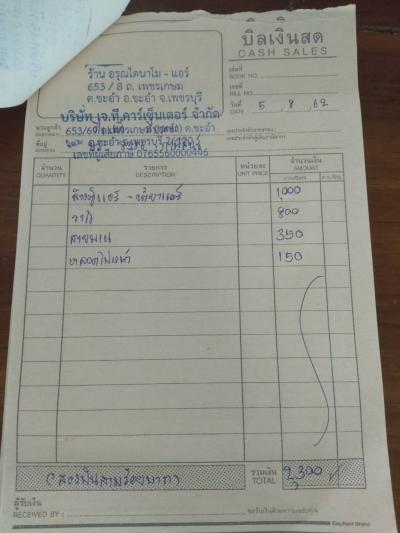 บิลเงินสด
CASH SALES
ร้าน อรุณไดนาโม - แอร์
653 / 8 ถ. เพชรเกษม
ต.ชะอำ อ.ชะอำ จ.เพชรบุรี
เล่มที่
BOOK NO.
เลขที่
BILL NO.
วันที่ 5 8 62
DATE
บริษัท เจ.ที.คาร์เซ็นเตอร์ จำกัด
นามลูกค้า
653/69 ถ.เพชรเกษม ต.ชะอำ
ที่อยู่
อ.ชะอำ จ.เพชรบุรี 76120
เลขที่ผู้เสียภาษี 0765560000446
จำนวน รายการ หน่วยละ จำนวนเงิน
QUANTITY DESCRIPTION UNIT PRICE AMOUNT
ล้างตู้แอร์ - 1,000
800
สายพาน 350
หลอดไฟหน้า 150
(สองพันสามร้อยบาท) รวมเงิน 2,300
TOTAL
ผู้รับเงิน
RECEIVED BY : ขอรับเงินด้วยความขอบคุณ
Elephant Brand